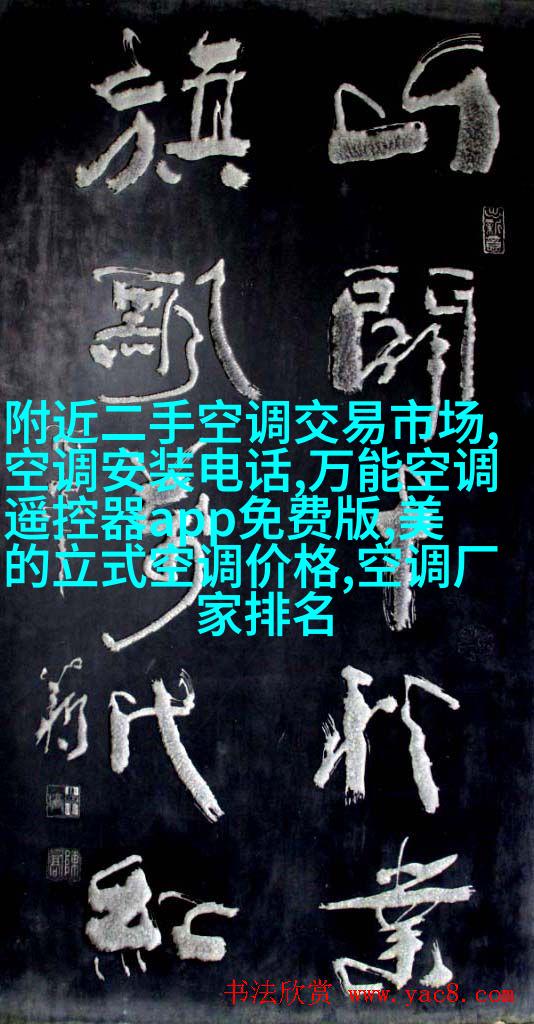 山開千秋業
旗飄萬代紅
附近二手空调交易市场,
空调安装电话,万能空调
遥控器app免费版,美
的立式空调价格,空调厂
家排名
书法欣赏 www.yac8.com